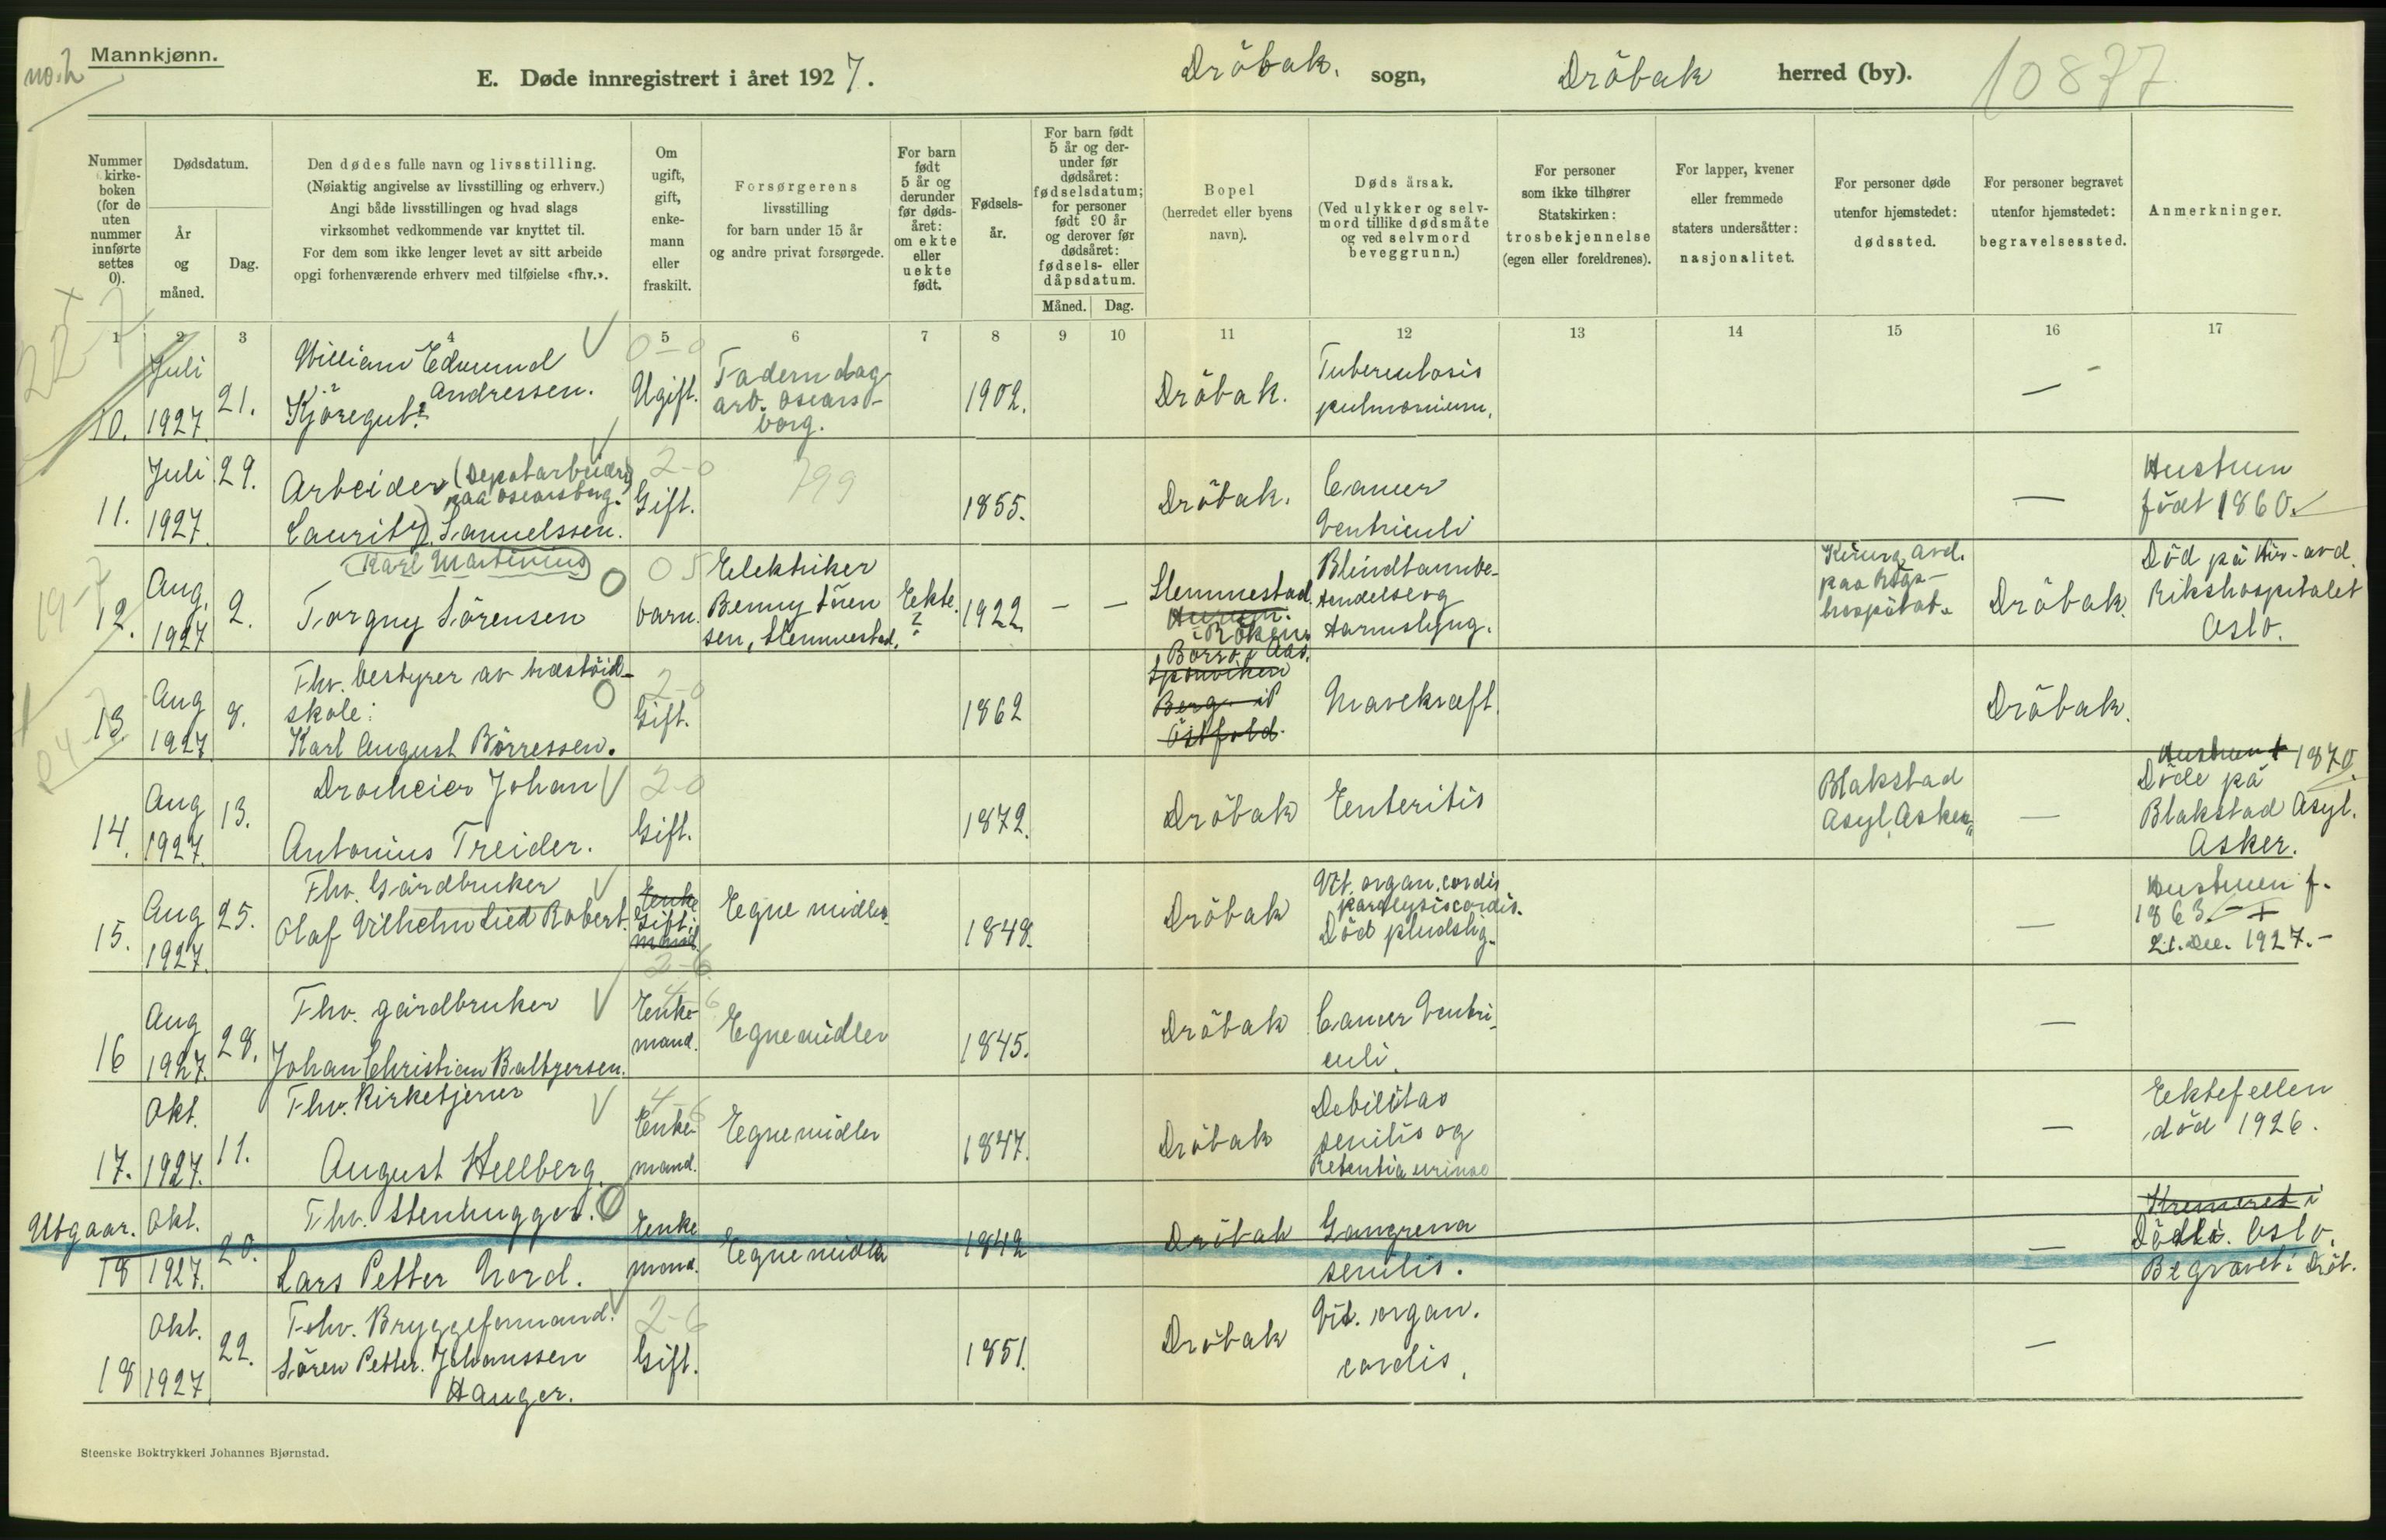 Mannkjønn.
no. 2
E. Døde innregistrert i året 1927.
Dröbak. sogn,
Dröbak herred (by).
10877
Nummer
kirke-
boken
(for de
uten
nummer
innførte
settes
0).
Dødsdatum.
År
og
måned.
Dag.
Den dødes fulle navn og livsstilling.
(Nøiaktig angivelse av livsstilling og erhverv.)
Angi både livsstillingen og hvad slags
virksomhet vedkommende var knyttet til.
For dem som ikke lenger levet av sitt arbeide
opgi forhenværende erhverv med tilføielse «fhv.».
Om
ugift,
gift,
enke-
mann
eller
fraskilt.
Forsørgerens
livsstilling
for barn under 15 år
og andre privat forsørgede.
For barn
født
5 år og
derunder
før døds-
året:
om ekte
eller
uekte
født.
Fødsels-
år.
For barn født
5 år og der-
under før
dødsåret:
fødselsdatum;
for personer
født 90 år
og derover før
dødsåret:
fødsels- eller
dåpsdatum.
Måned. Dag.
Bopel
(herredet eller byens
navn).
Døds årsak.
(Ved ulykker og selv-
mord tillike dødsmåte
og ved selvmord
beveggrunn.)
For personer
som ikke tilhører
Statskirken:
trosbekjennelse
(egen eller foreldrenes).
For lapper, kvener
eller fremmede
staters undersåtter:
nasjonalitet.
For personer døde
utenfor hjemstedet:
dødssted.
For personer begravet
utenfor hjemstedet:
begravelsessted.
Anmerkninger.
1 2 3 4 5 6 7 8 9 10 11 12 13 14 15 16 17
22-7
10.
Juli
1927.
21.
William Edmund
Andressen.
Kjöregut.
0-0
Ugift.
Fadern dag
arb. Oscars-
borg.
1902.
Dröbak.
Tuberculosis
pulmonium.
—
11.
Juli
1927.
29.
Arbeider (Depotarbeider
paa Oscarsborg.)
Lauritz Samuelssen.
2-0
Gift.
799
1855.
Dröbak.
Cancer
Ventriculi
—
Hustruen
födt 1860.
19-7
12.
Aug.
1927
2.
(Karl Martinius)
Torgny Sörensen
0 5
barn.
Eelektriker
Benny Sören
sen, Slemmestad.
Ekte.
?
1922
— —
Slemmestad.
i Röken.
Blindtarmbe-
tendelse og
tarmslyng.
Kirurg. avd.
paa Rigs-
hospitat.
Dröbak.
Död på kir-avd.
Rikshospitalet
Oslo.
24-7
13.
Aug
1927
8.
Fhv. bestyrer av
skole:
Karl August Börressen.
2-0
Gift.
1862
Aas.
Sponviken
Berg i
Östfold.
Mavekræft.
Dröbak.
14.
Aug
1927.
13.
Johan
Antonius Treider.
2-0
Gift.
1872.
Dröbak
Eenteritis
Blakstad
Asyl, Asker
—
Hustru f. 1870.
Döde på
Blakstad Asyl.
Asker.
15.
Aug
1927.
25.
Fhv. Gårdbruker
Olaf Vilhelm Lied Robert.
Enke
Gift.
mand
2-6
Eegne midler.
1848.
Dröbak
Vit. organ. cordis
paralysis cordis.
Död pludslig.
—
Hustruen f.
1863 - +
21. Dec. 1927.-
16
Aug
1927.
28.
Fhv. gårdbruker
Johan Christian Baltzersen.
4-6
Eenke-
mand.
Egne midler
1845.
Dröbak
Cancer Ventri-
culi.
—
17.
Okt.
1927.
11.
Fhv. Kirketjener
August Hellberg.
4-6
Eenke-
mand.
Eegne midler
1847.
Dröbak
Debilitas
senilis og
Retentia urinae
—
Eektefellen
död 1926.
Utgaar.
18
Okt.
1927.
20.
Fhv. Stenhugger.
Lars Petter Nord.
Eenke
mand.
Eegne midler
1842
Dröbak
Gangrena
senilis.
—
Kremeret i
Oslo.
Begravet i Dröb.
18
Okt.
1927.
22.
Fehv. Bryggeformand.
Sören Petter. Johanssen
Hauger.
2-6
Gift.
1851.
Dröbak
Vit. organ.
cordis.
—
Steenske Boktrykkeri Johannes Bjørnstad.